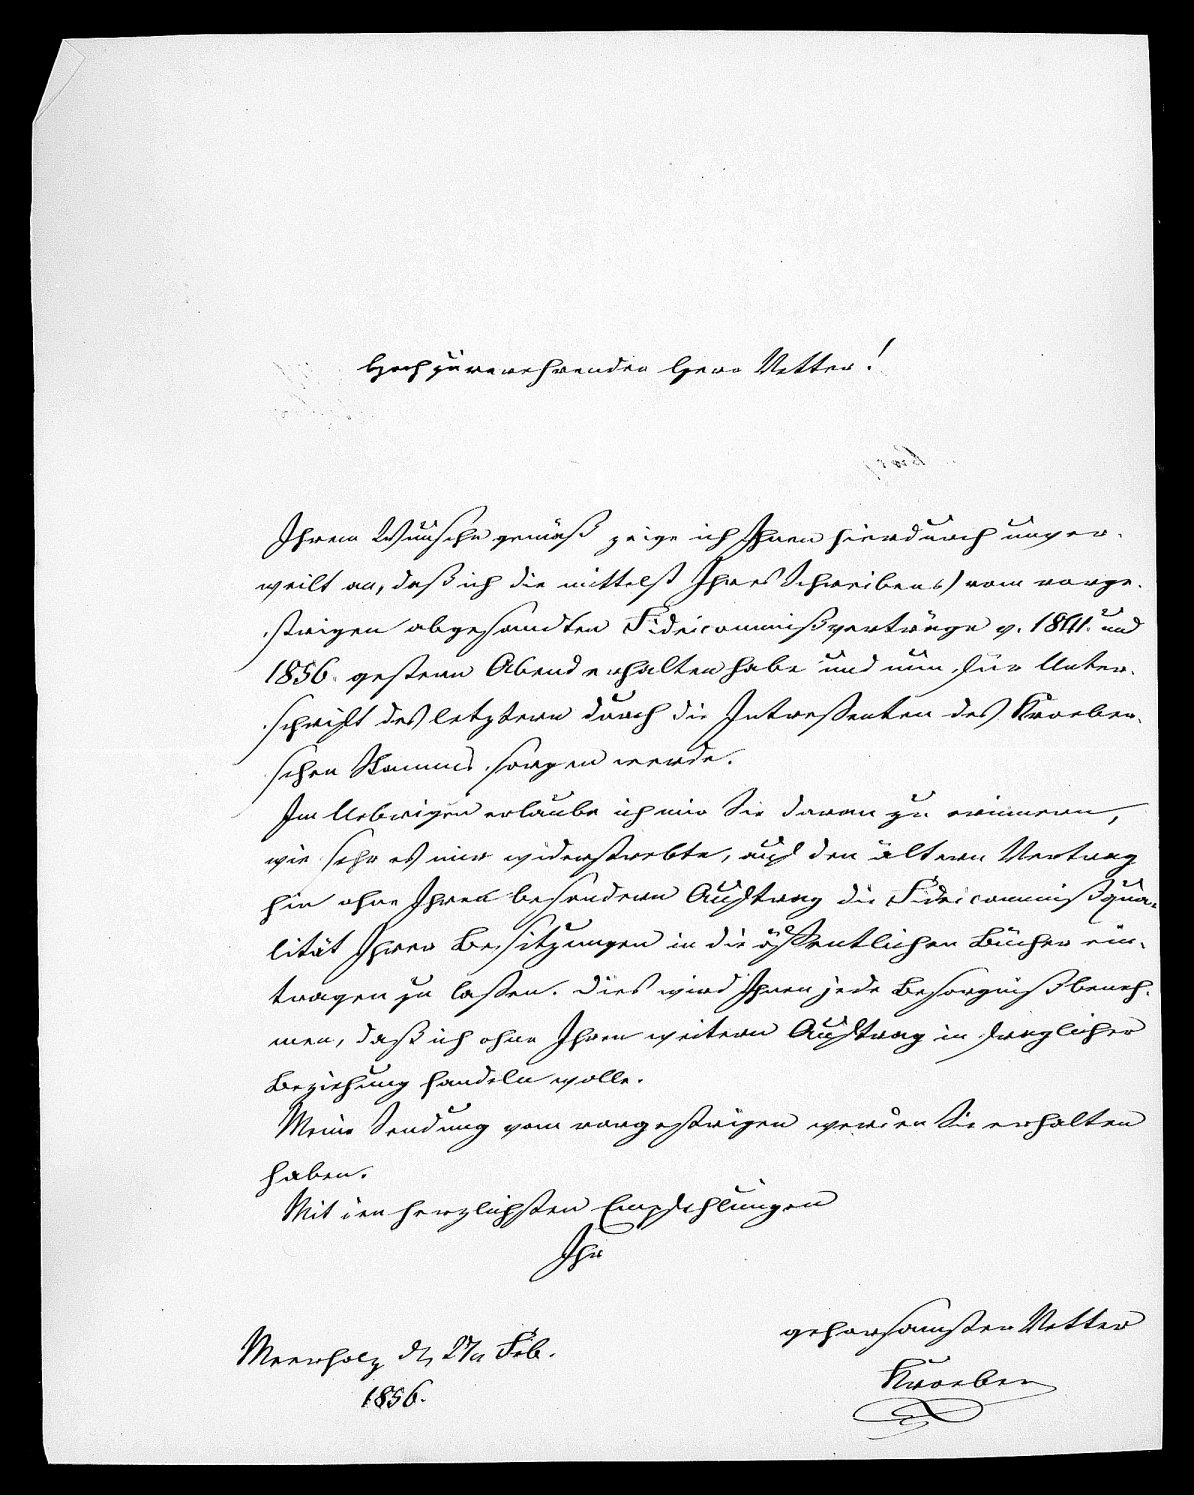 Hochzuverehrender Herr Vetter!
Ihrem Wunsche gemäß zeige ich Ihnen hierdurch unver-
weilt an, daß ich die mittelst Ihres Schreibens vom vorge-
strigen abgesandten Fideicommißverträge v. 1841. und
1856. gestern Abend erhalten habe und nun für Unter-
schrift des letztern durch die Intreßenten des Kroeber-
schen Stamms sorgen werde.
Im Uebrigen erlaube ich mir Sie daran zu erinnern,
wie sehr es mir widerstrebte, auf den ältern Vertrag
hin ohne Ihren besondern Auftrag die Fideicommißqua-
lität Ihrer Besitzungen in die öffentlichen Bücher ein-
tragen zu laßen. Dies wird Ihnen jede Besorgniß beneh-
men, daß ich ohne Ihren weitern Auftrag in fraglicher
Beziehung handeln wolle.
Meine Sendung vom vorgestrigen werden Sie erhalten
haben.
Mit den herzlichsten Empfehlungen
Ihr
gehorsamster Vetter
Meerholz d. 27n Feb.
Kroeber
1856.